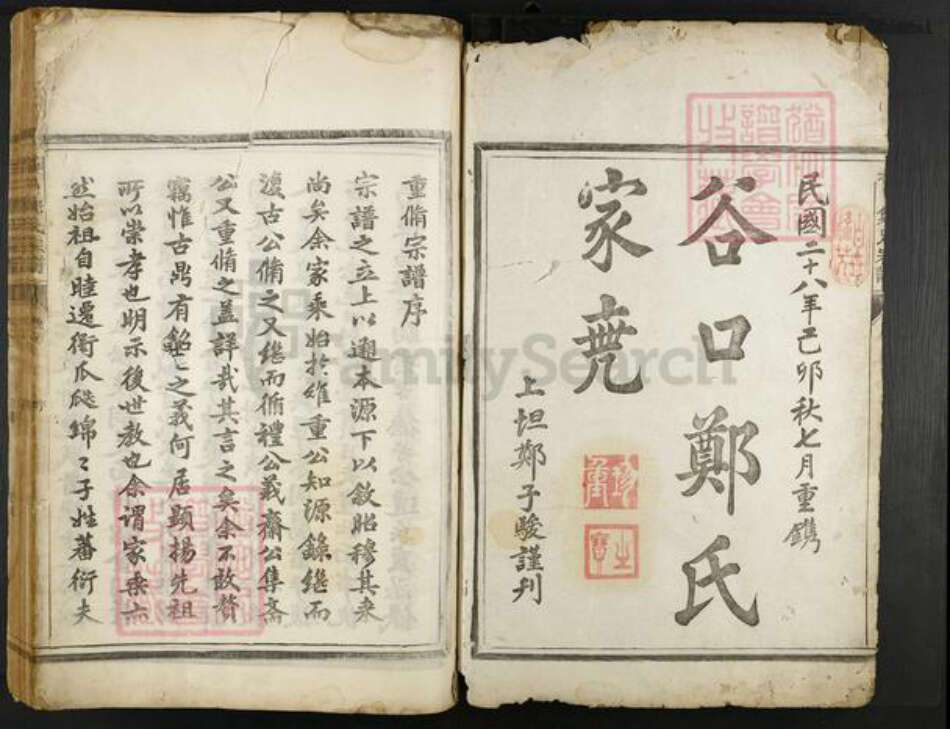 民國二十八年己卯秋七月重鐫
谷口鄭氏
家乘
上坦鄭子駿謹刋
重脩宗譜序
宗譜之立上以遡本源下以敘昭穆其来
尚矣余家乘始於維重公知源錄繼而
復古公脩之又継而循禮公義齋公集斋
公又重脩之盖詳哉其言之矣余不敢贅
竊惟古鼎有銘〻之義何居顕揚先祖
所以崇孝也明示後世教也余谓家乘亦
然始祖自睦遷衢瓜瓞綿〻子姓蕃衍夫
FamilySearch